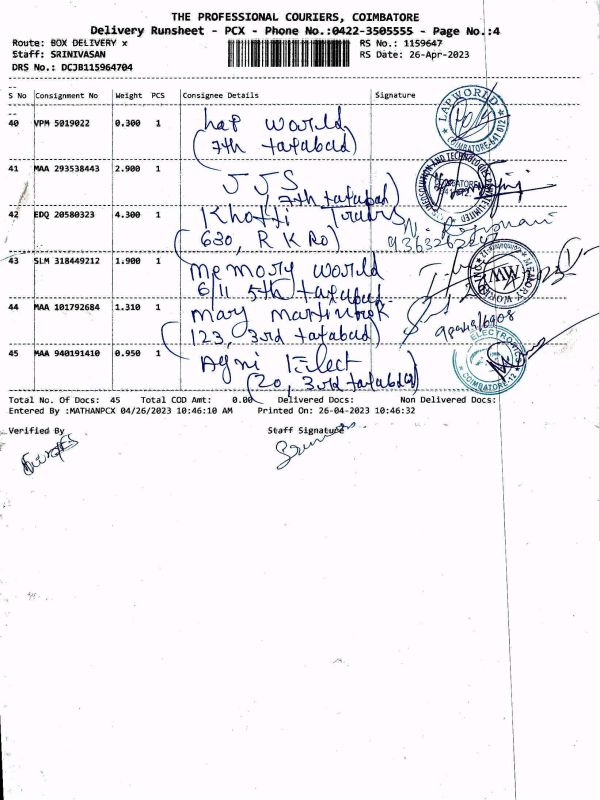 THE PROFESSIONAL COURIERS, COIMBATORE
Delivery Runsheet - PCX - Phone No.:0422-3505555 - Page No.:4
Route: BOX DELIVERY x RS No.: 1159647
Staff: SRINIVASAN RS Date: 26-Apr-2023
DRS No.: DCJB115964704
S No Consignment No Weight PCS Consignee Details Signature
40 VPM 5019022 0.300 1 Lap World
(7th tatabad)
LAP WORLD
COIMBATORE-641 012
41 MAA 293538443 2.900 1 JJS
7th tatabad)
42 EDQ 20580323 4.300 1
(630, R K Ro)
43 SLM 318449212 1.900 1 memory world
6/11 5th tatabad
MEMORY WORLD
MW
44 MAA 101792684 1.310 1 mary
(123, 3rd tatabad)
45 MAA 940191410 0.950 1 Agni Elect
(20, 3rd tatabad)
ELECTRONIC
COIMBATORE-12
Total No. Of Docs: 45 Total COD Amt: 0.00 Delivered Docs: Non Delivered Docs:
Entered By :MATHANPCX 04/26/2023 10:46:10 AM Printed On: 26-04-2023 10:46:32
Verified By Staff Signature